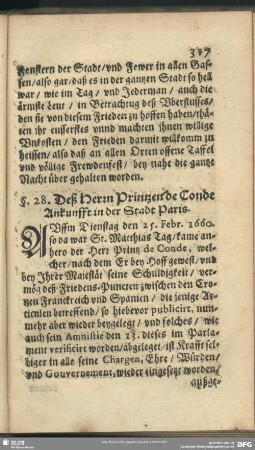 317
Fenstern der Stadt/ vnd Fewer in allen Gas-
sen/ also gar/ daß es in der gantzen Stadt so hell
war/ wie im Tag/ vnd Jederman/ auch die
ärmste Leut/ in Betrachtug deß Vberflusses/
den sie von diesem Frieden zu hoffen haben/ thä-
ten ihr eusserstes vnnd machten ihnen willige
Vnkosten/ den Frieden darmit wilkomm zu
heissen/ also daß an allen Orten offene Taffel
vnd völlige Frewdenfest/ bey nahe die gantze
Nacht über gehalten worden.
§. 28. Deß Herrn Printzen de Conde
Ankunfft in der Stadt Paris.
AVffin Dienstag den 25. Febr. 1660.
so da war St. Matthias Tag/ kame an-
hero der Herr Printz de Conde, wel-
cher/ nach dem Er bey Hoff gewest/ vnd
bey Ihrer Maiestät seine Schuldigkeit/ ver-
mög deß Friedens-Puncten zwischen den Cro-
nen Franckreich vnd Spanien/ die jenige Ar-
ticulen betreffend/ so hiebevor publicirt, nun-
mehr aber wieder beygelegt/ vnd solches/ wie
auch sein Amnistie den 13. dieses im Parla-
ment verificirt worden/ abgeleget/ ist Krafft sel-
biger in alle seine Chargen, Ehre/ Würden/
vnd Gouvernement, wieder eingesetzt worden/
außge-
SLUB
DFG